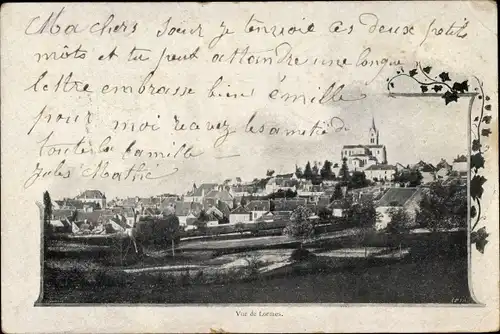 Ma chers Sœur je t'envoie ces deux petits
mots et tu peut attandre une longue
lettre embrasse bien émille
pour moi recevez les amité de
toute la famille
Jules Mathé
Vue de Lormes.